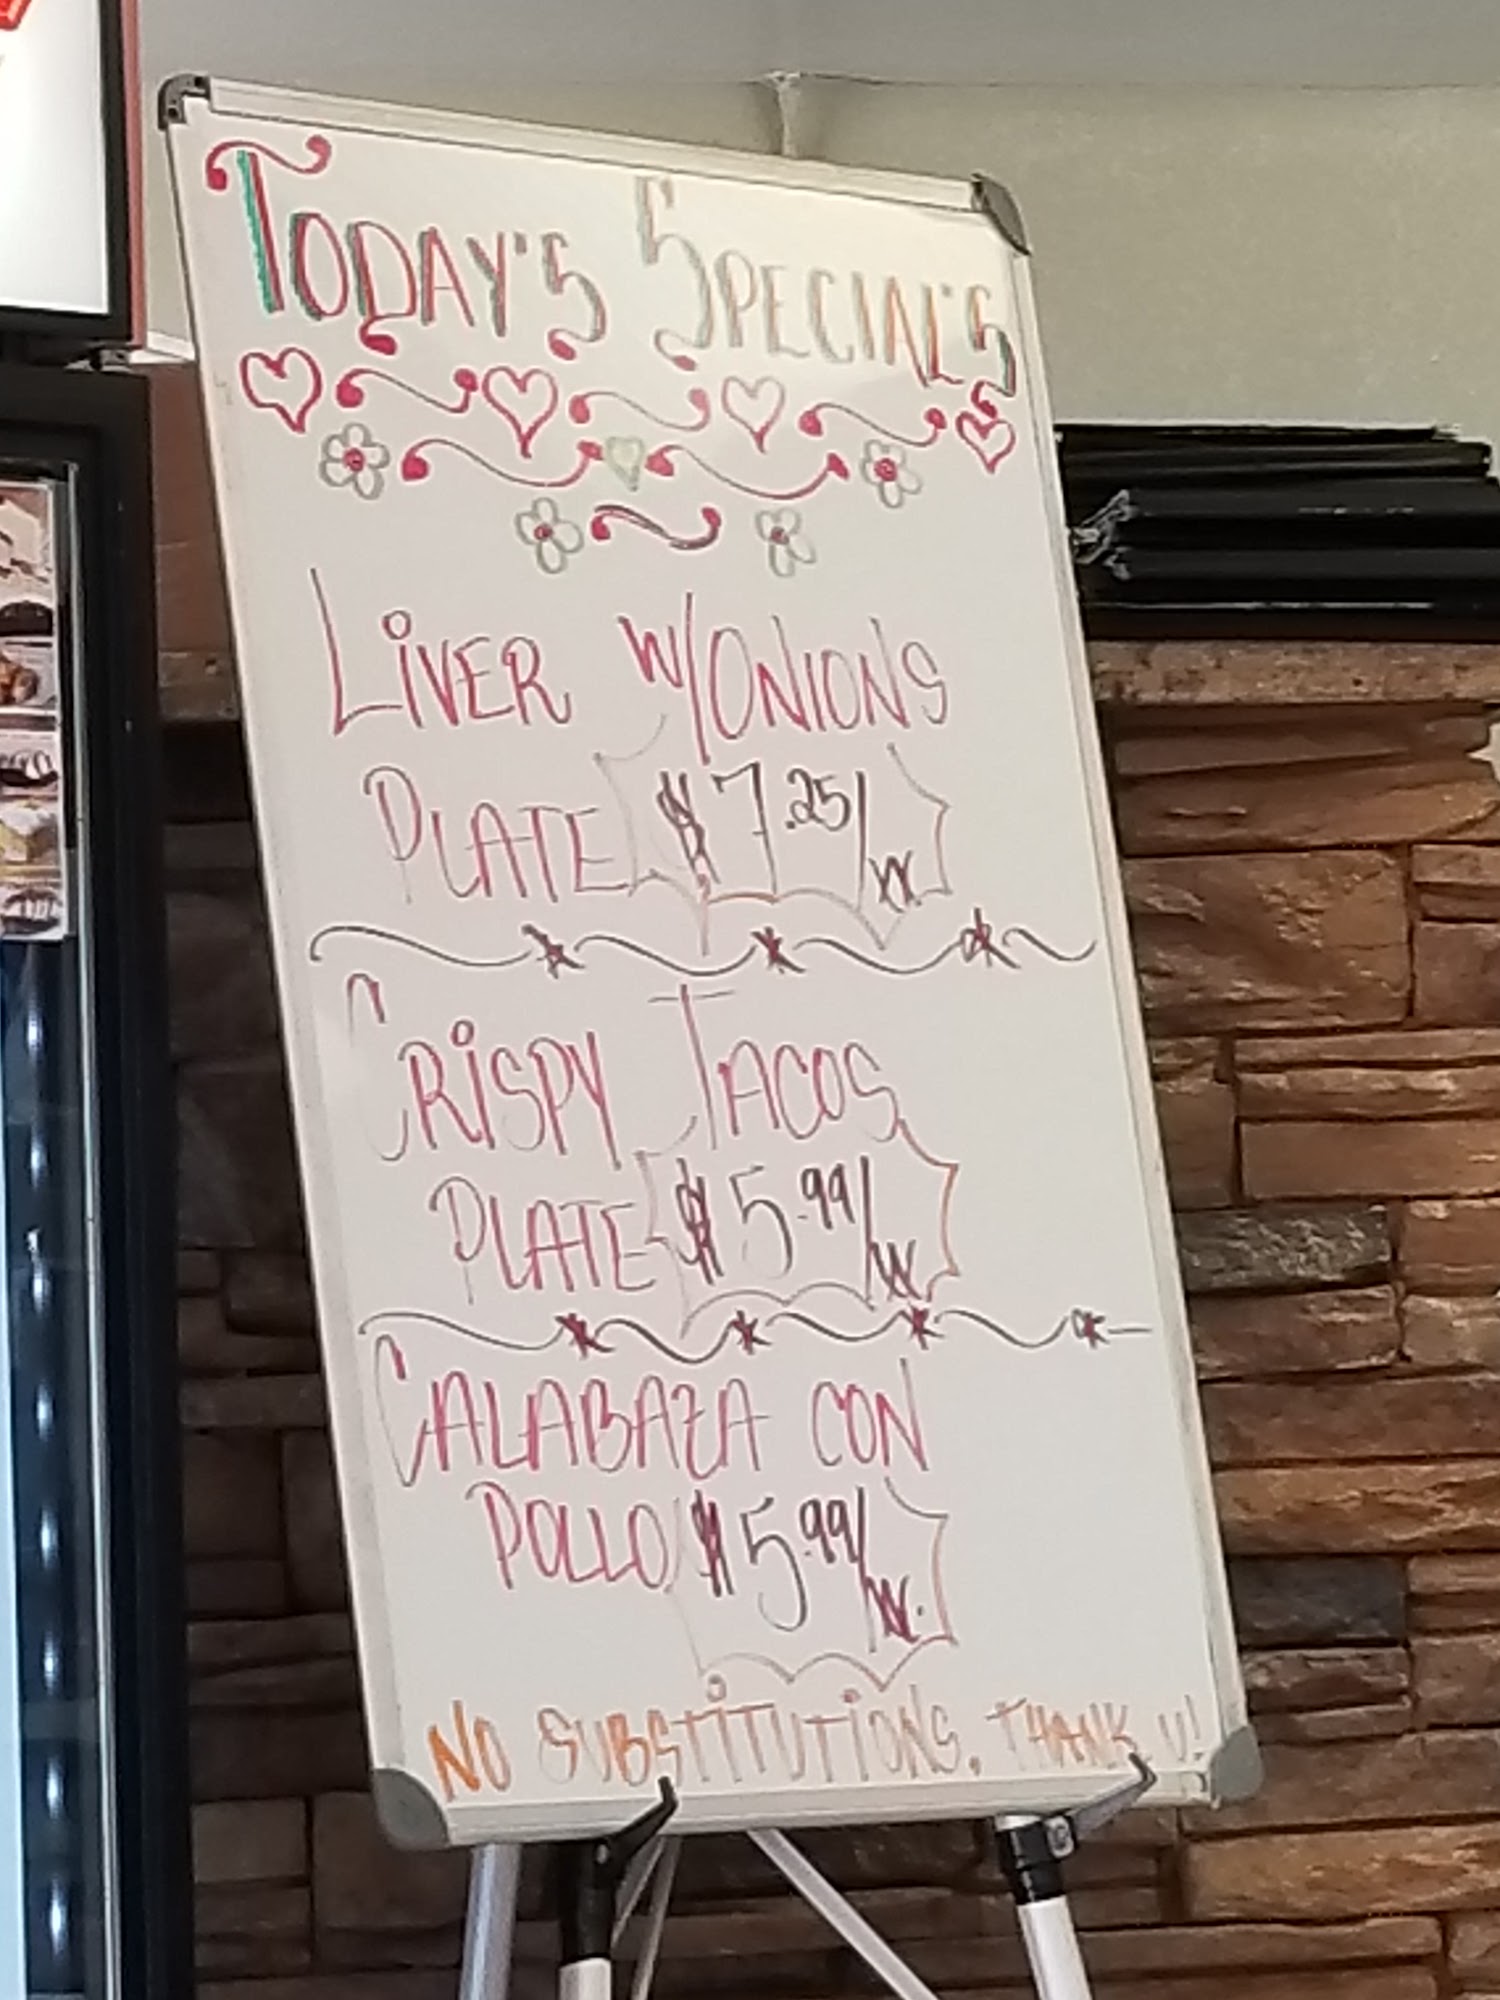 TODAY'S SPECIAL'S
LIVER W/ONIONS
PLATE $7.25/xx
CRISPY TACOS
PLATE $5.99/xx
CALABAZA CON
POLLO $5.99/xx.
NO SUBSTITUTIONS, THANK U!